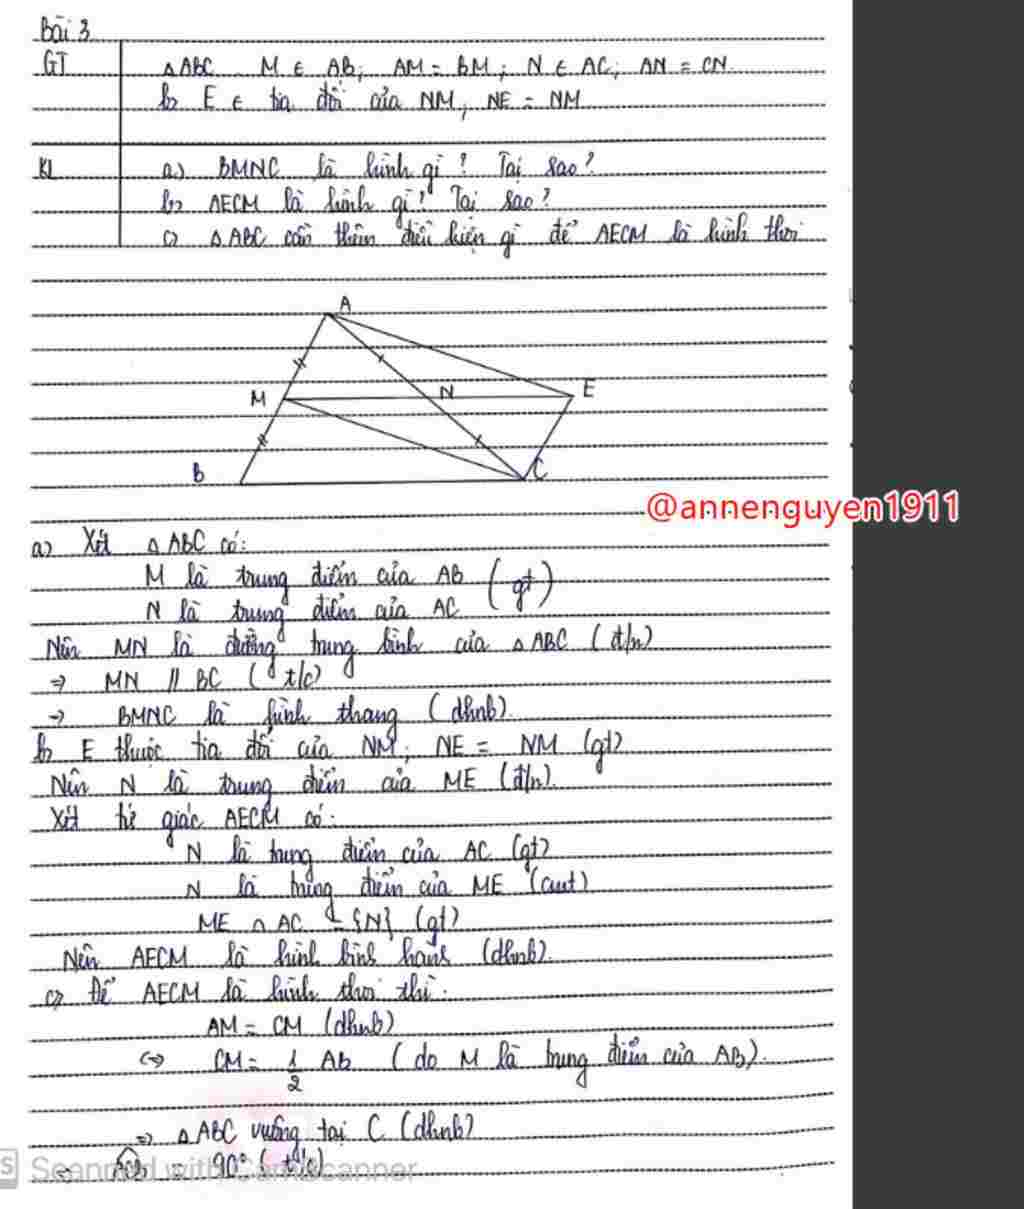 Bài 3
GT
△ABC M ∈ AB; AM = BM; N ∈ AC; AN = CN.
b) E ∈ tia đối của NM, NE = NM
KL
a.) BMNC là hình gì? Tại sao?
b) AECM là hình gì? Tại sao?
c) △ABC cần thêm điều kiện gì để AECM là hình thoi
A
M
N
E
B
C
@annenguyen1911
a) Xét △ABC có:
M là trung điểm của AB (gt)
N là trung điểm của AC
Nên MN là đường trung bình của △ABC (đ/n)
⇒ MN // BC (t/c)
⇒ BMNC là hình thang (dhnb).
b) E thuộc tia đối của NM; NE = NM (gt)
Nên N là trung điểm của ME (đ/n).
Xét tứ giác AECM có:
N là trung điểm của AC (gt)
N là trung điểm của ME (cmt)
ME ∩ AC = {N} (gt)
Nên AECM là hình bình hành (dhnb).
c) Để AECM là hình thoi thì:
AM = CM (dhnb)
⇔ CM = 1/2 AB (do M là trung điểm của AB).
⇒ △ABC vuông tại C (dhnb)
⇒ ACB = 90° (t/c)
S Scanned with CamScanner